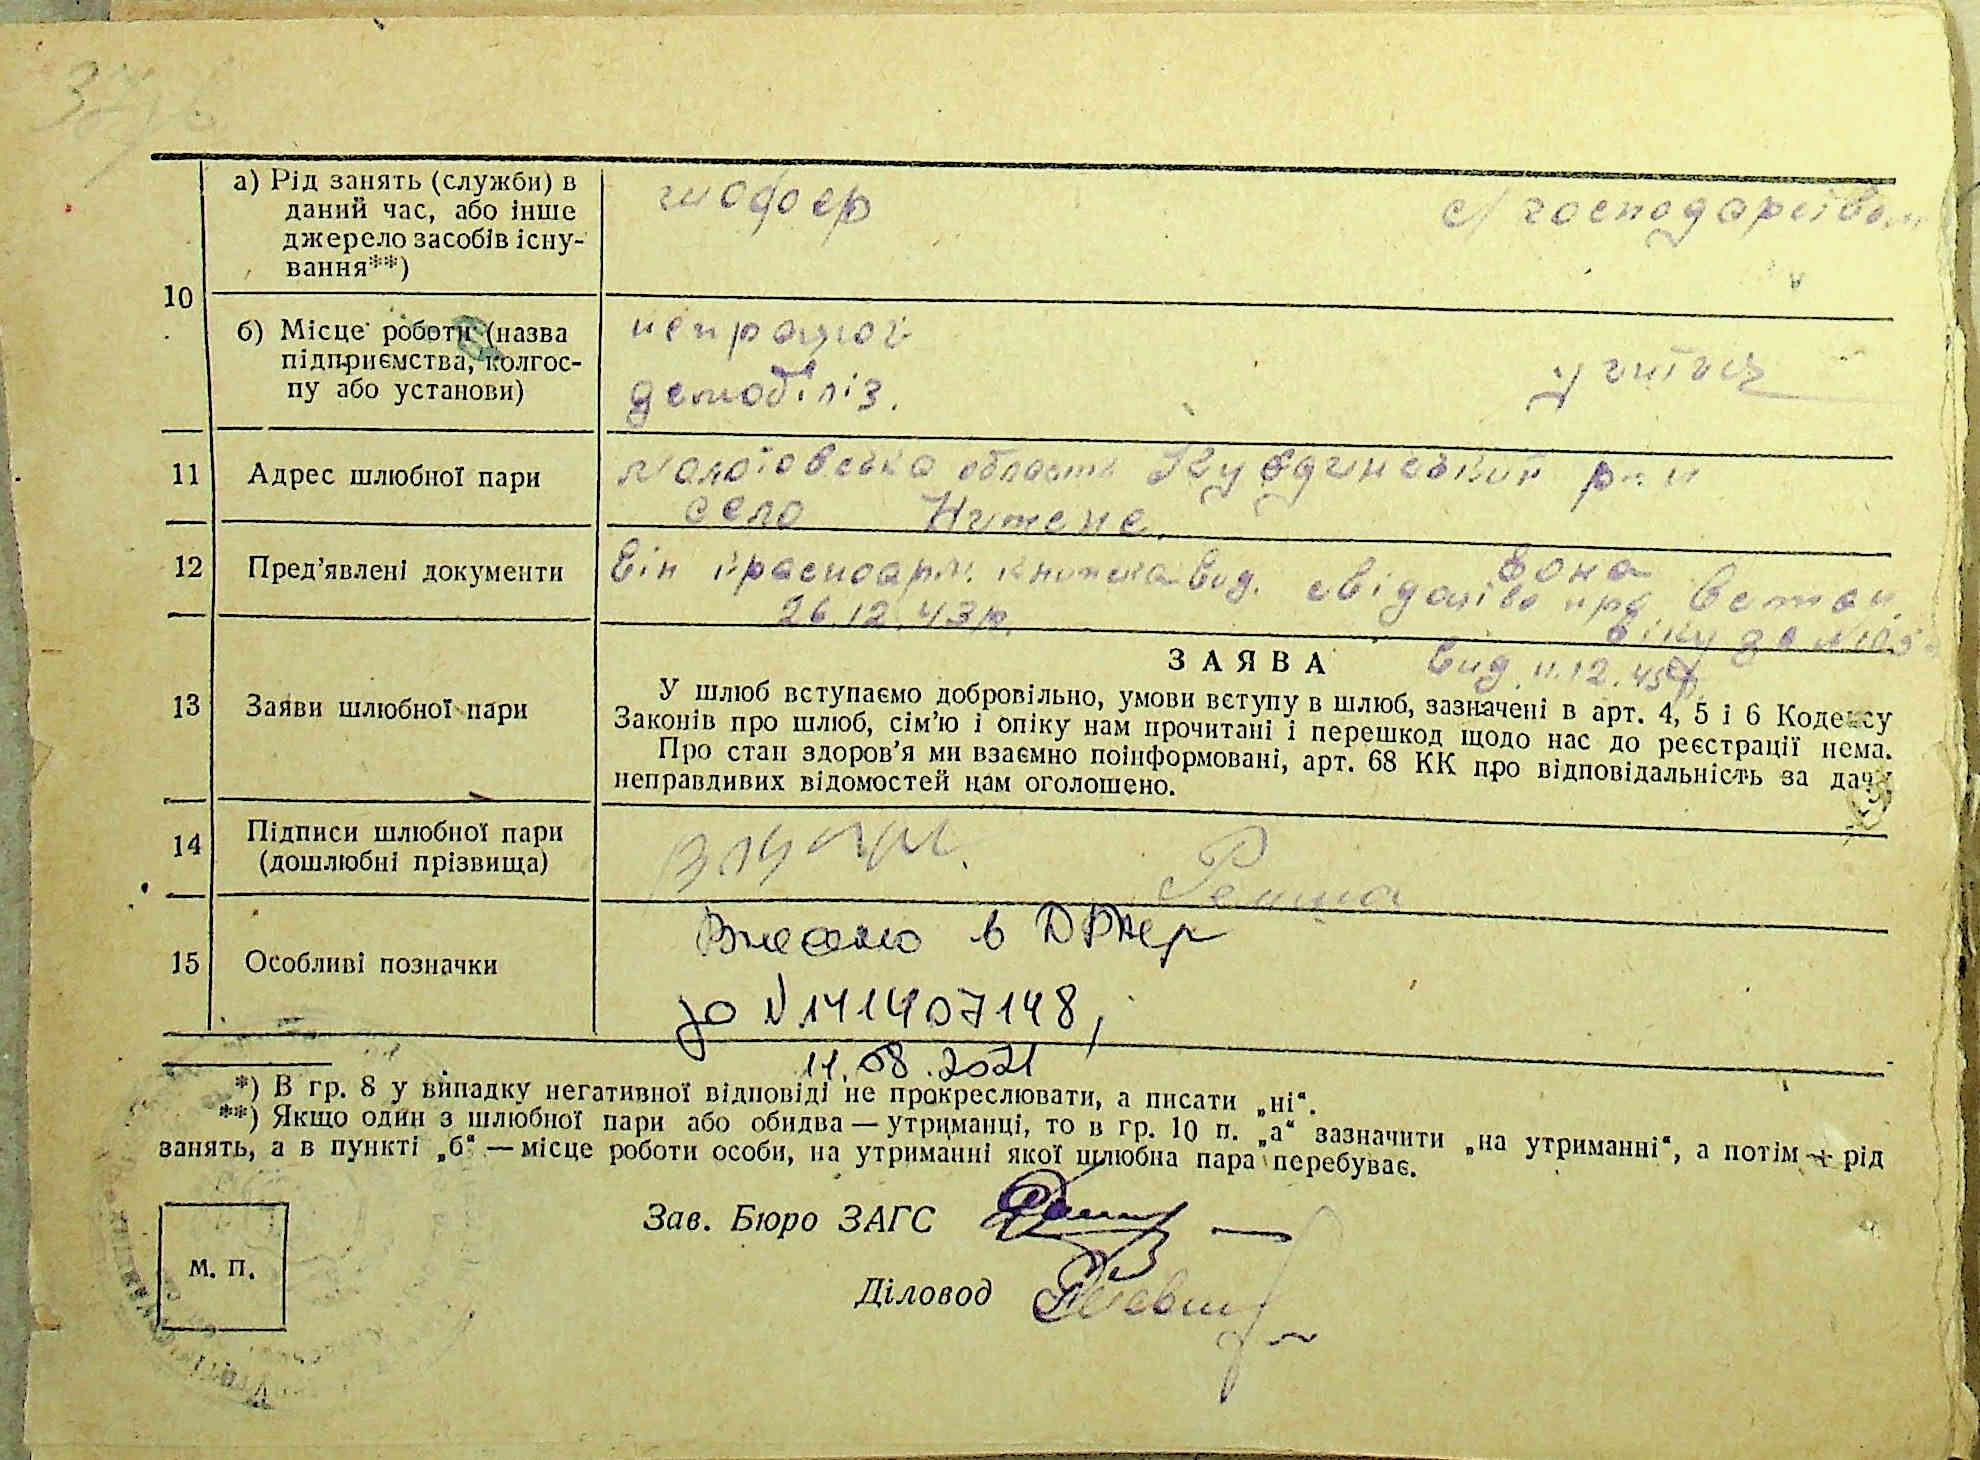 а) Рід занять (служби) в
даний час, або інше
джерело засобів існу-
вання**)
шофер
с/господарством
10
б) Місце роботи (назва
підприємства, колгос-
пу або установи)
непрацює
демобіліз.
учитися
11 Адрес шлюбної пари
Молотовська область Куєдинський р-н
село
12 Пред'явлені документи
Він красноарм. книжка вид.
26.12.43р.
Вона
свідоцтво про встан.
віку за №
вид. 11.12.45р.
ЗАЯВА
13 Заяви шлюбної пари
У шлюб вступаємо добровільно, умови вступу в шлюб, зазначені в арт. 4, 5 і 6 Кодексу
Законів про шлюб, сім'ю і опіку нам прочитані і перешкод щодо нас до реєстрації нема.
Про стан здоров'я ми взаємно поінформовані, арт. 68 КК про відповідальність за дачу
неправдивих відомостей нам оголошено.
14 Підписи шлюбної пари
(дошлюбні прізвища)
15 Особливі позначки
Внесено в ДРАЦС
за N 141407148,
11.08.2021
*) В гр. 8 у випадку негативної відповіді не прокреслювати, а писати „ні“.
**) Якщо один з шлюбної пари або обидва — утриманці, то в гр. 10 п. „а“ зазначити „на утриманні“, а потім — рід
занять, а в пункті „б“ — місце роботи особи, на утриманні якої шлюбна пара перебуває.
Зав. Бюро ЗАГС
М. П.
Діловод